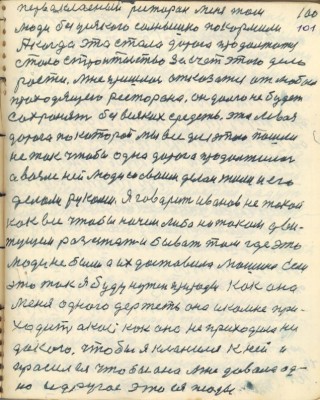 ресторан меня там 100
люди без всякого солнышко покормили 101
А когда эта стала дорога продолжать
стало строительство за счет этого дела
расти. Мне пришлось отказаться от
проходящего ресторана, он долго не будет
сохранять без всяких средств, эта левая
дорога по которой мы все до этого пошли
не так чтобы одна дорога продолжилась
а возле ней люди со своим делом жили и его
делали руками. Я говорит Иванов не такой
как все чтобы на чем либо на таком
бывать там где это
люди не были а их доставила машина Если
это так Я буду нужен природе Как она
меня одного держать она и ко мне при-
ходит, а как она не приходила ни
до кого, чтобы я кланялся к ней и
просил ея чтобы она мне давала од-
но и другое это ея люди.